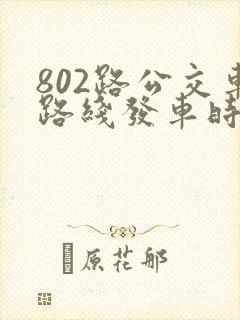 802路公交車
路綫發車時
原花邨